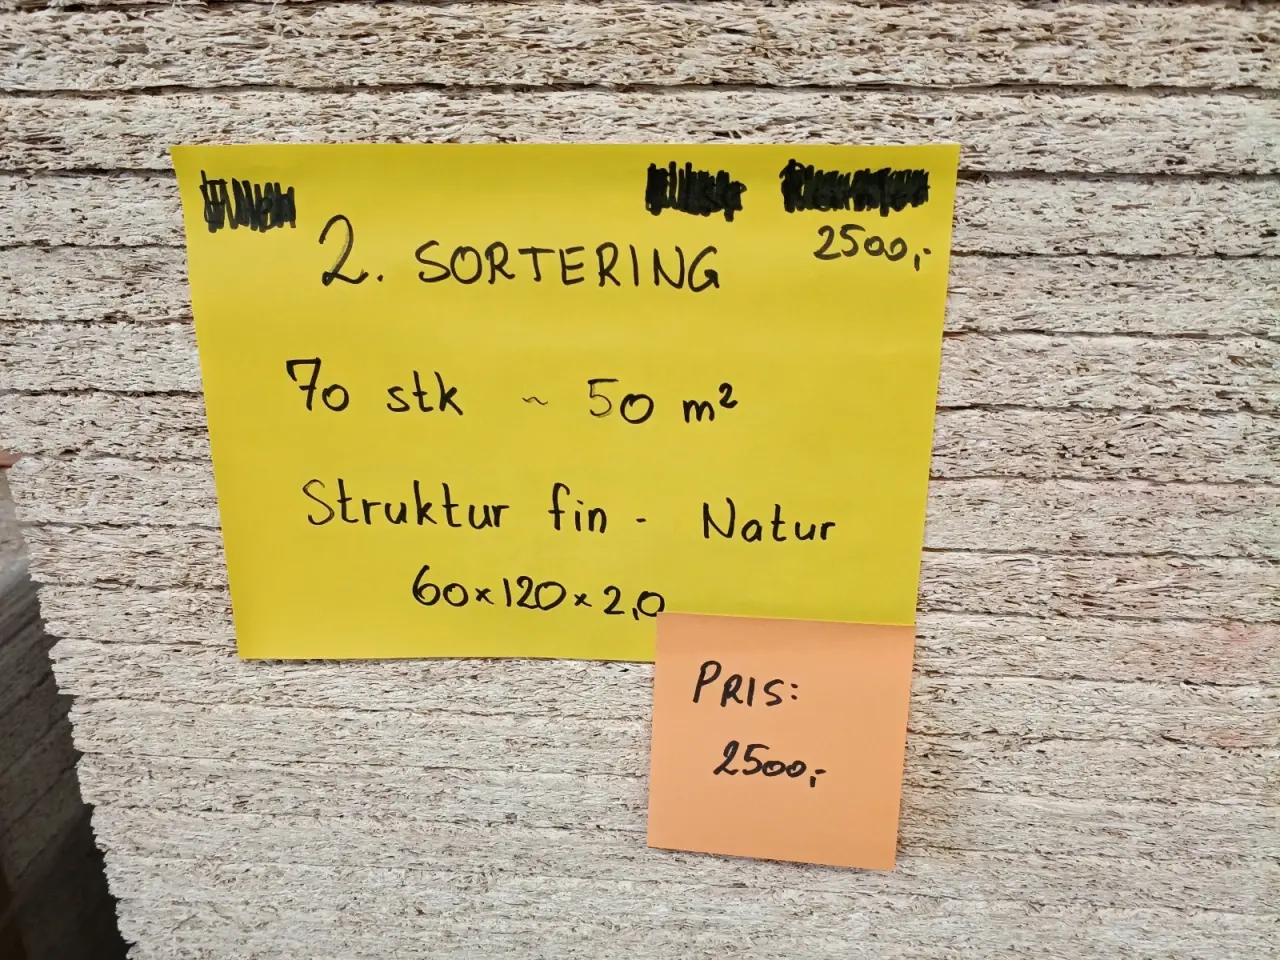 2500,-
2. SORTERING
70 stk ~ 50 m²
Struktur fin - Natur
60x120x2,0
PRIS:
2500,-